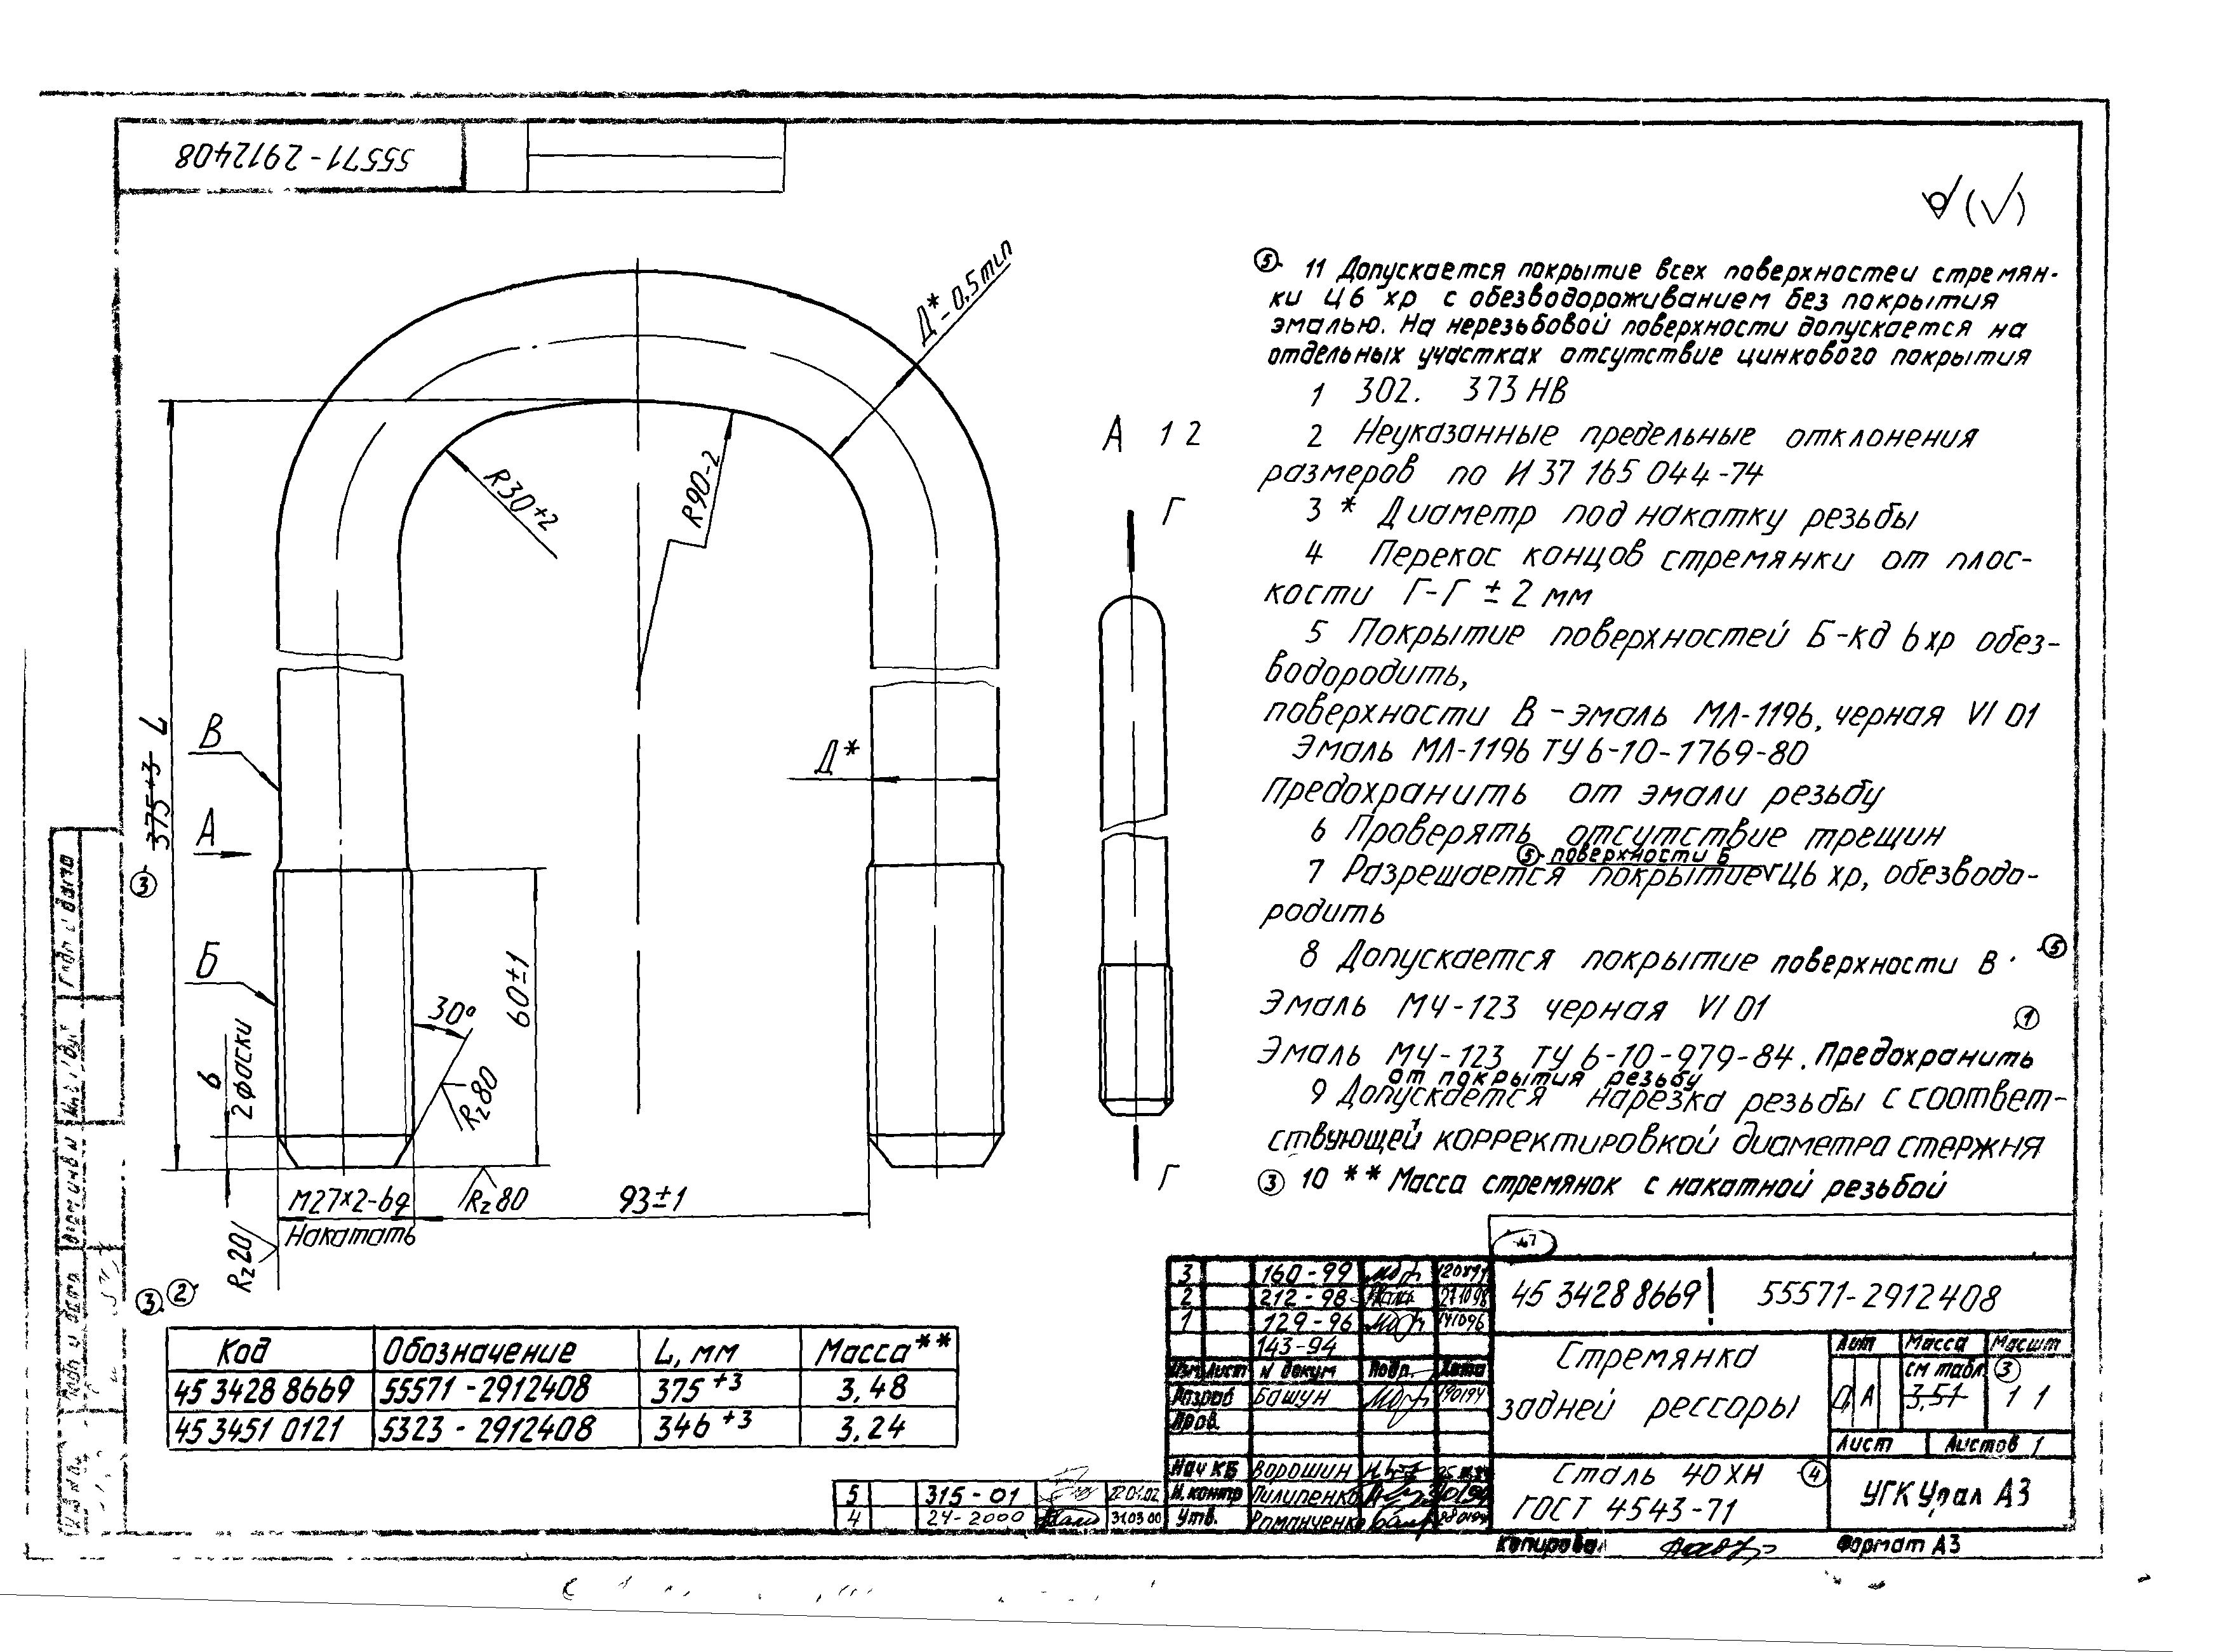 55571-2912408
⑤ 11 Допускается покрытие всех поверхностей стремян-
ки Ц6 хр с обезводороживанием без покрытия
эмалью. На нерезьбовой поверхности допускается на
отдельных участках отсутствие цинкового покрытия
1 302. 373 НВ
2 Неуказанные предельные отклонения
размеров по И 37 165 044-74
3 * Диаметр под накатку резьбы
4 Перекос концов стремянки от плос-
кости Г-Г ± 2 мм
5 Покрытие поверхностей Б-кд 6хр обез-
водородить,
поверхности В - эмаль МЛ-1196, черная VI 01
Эмаль МЛ-1196 ТУ 6-10-1769-80
Предохранить от эмали резьбу
6 Проверять отсутствие трещин
⑤ поверхности Б
7 Разрешается покрытие Ц6 хр, обезводо-
родить
8 Допускается покрытие поверхности В ⑤
Эмаль МЧ-123 черная VI 01
①
Эмаль МЧ-123 ТУ 6-10-979-84. Предохранить
от покрытия резьбу
9 Допускается нарезка резьбы с соответ-
ствующей корректировкой диаметра стержня
③ 10 ** Масса стремянок с накатной резьбой
Д*-0,5 min
R30+2
R90-2
А 1 2
Г
Г
375+3 L
③
В
А
Б
Д*
30°
60±1
6
2 фаски
Rz80
Rz80
М27×2-6g
Накатать
93±1
Rz20
③ ②
Код Обозначение L, мм Масса**
45 3428 8669 55571-2912408 375+3 3,48
45 3451 0121 5323-2912408 346+3 3,24
5 315-01 22.01.02
4 24-2000 31.03.00
3 160-99
2 212-98 271098
1 129-96 141096
143-94
Изм Лист N докум Подп. Дата
Разраб Башун 190194
Пров.
Нач КБ Ворошин
Н. контр Пилипенко
Утв. Романченко
45 3428 8669 55571-2912408
Стремянка
задней рессоры
Лит Масса Масшт
см табл. ③
А 3,51 1 1
Лист Листов 1
Сталь 40ХН ④
ГОСТ 4543-71
УГК Урал АЗ
Копировал
Формат А3